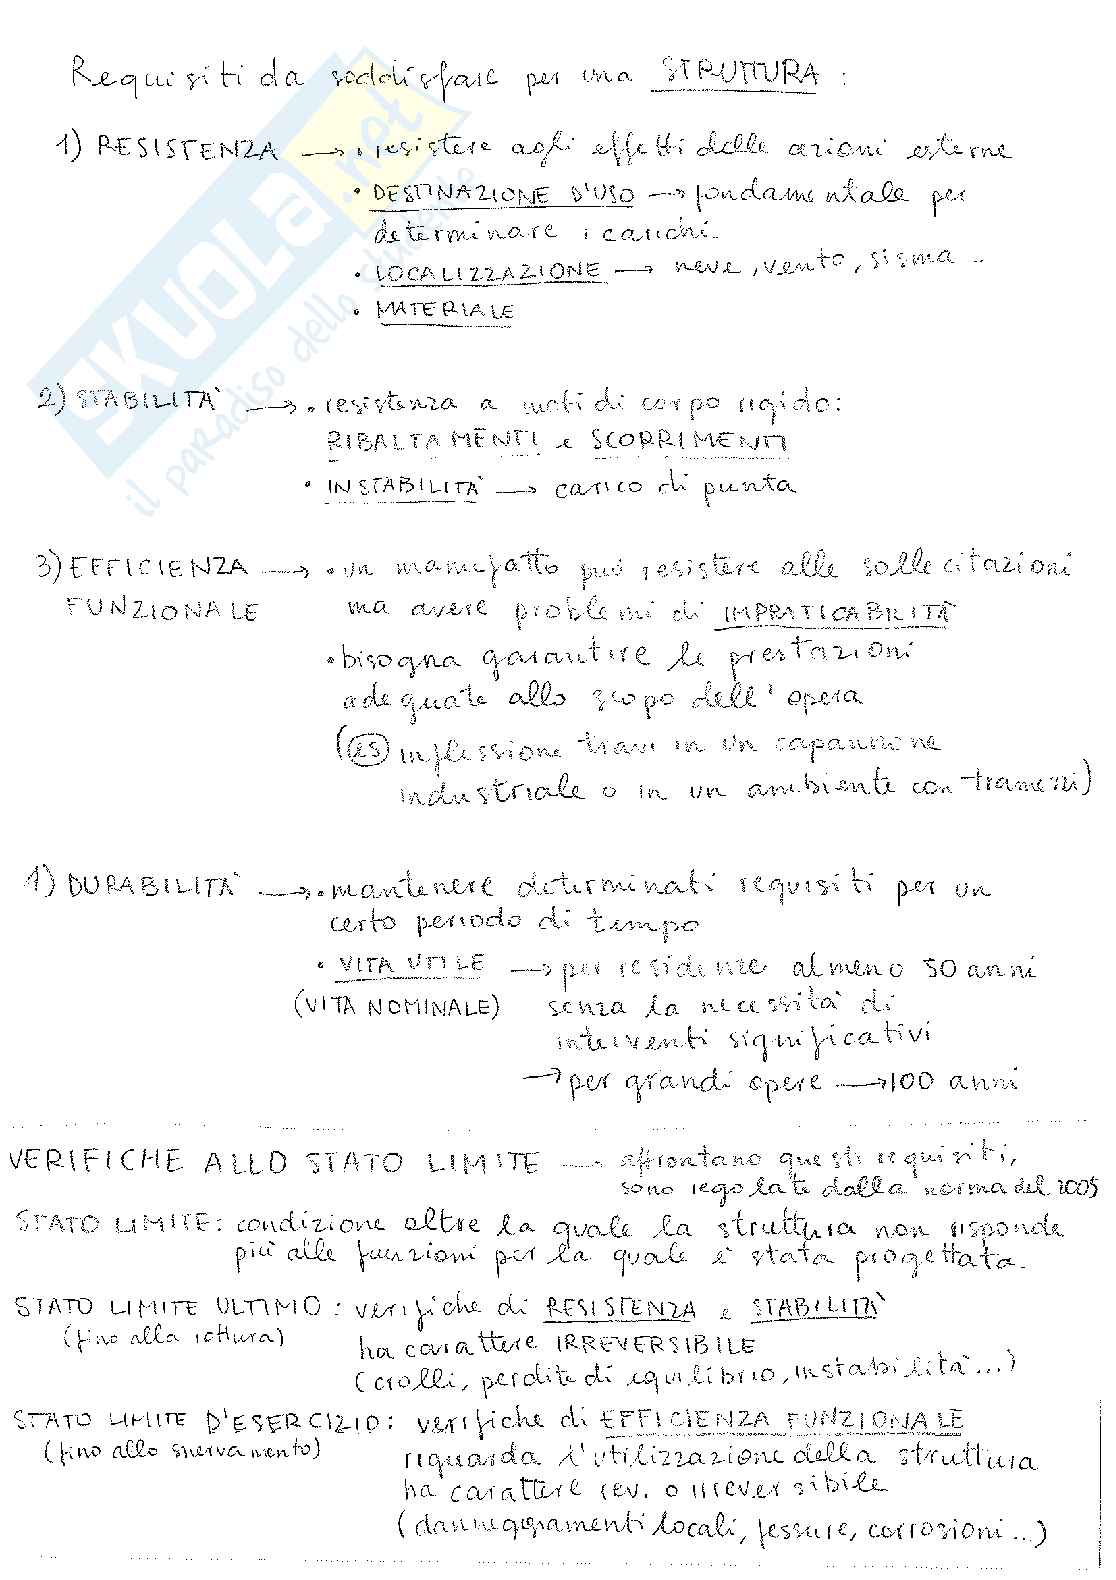 Requisiti da soddisfare per una STRUTTURA :
1) RESISTENZA → • resistere agli effetti delle azioni esterne
• DESTINAZIONE D'USO → fondamentale per
determinare i carichi.
• LOCALIZZAZIONE → neve, vento, sisma ..
• MATERIALE
2) STABILITÀ → • resistenza a moti di corpo rigido:
RIBALTAMENTI e SCORRIMENTI
• INSTABILITÀ → carico di punta
3) EFFICIENZA → • un manufatto può resistere alle sollecitazioni
FUNZIONALE ma avere problemi di IMPRATICABILITÀ
• bisogna garantire le prestazioni
adeguate allo scopo dell'opera
(es inflessione travi in un capannone
industriale o in un ambiente con tramezzi)
1) DURABILITÀ → • mantenere determinati requisiti per un
certo periodo di tempo
• VITA UTILE → per residenze almeno 50 anni
(VITA NOMINALE) senza la necessità di
interventi significativi
→ per grandi opere → 100 anni
VERIFICHE ALLO STATO LIMITE → affrontano questi requisiti,
sono regolate dalla norma del 2005
STATO LIMITE: condizione oltre la quale la struttura non risponde
più alle funzioni per la quale è stata progettata.
STATO LIMITE ULTIMO : verifiche di RESISTENZA e STABILITÀ
(fino alla rottura) ha carattere IRREVERSIBILE
(crolli, perdite di equilibrio, instabilità...)
STATO LIMITE D'ESERCIZIO: verifiche di EFFICIENZA FUNZIONALE
(fino allo snervamento) riguarda l'utilizzazione della struttura
ha carattere rev. o irreversibile
(danneggiamenti locali, fessure, corrosioni...)
SKUOLA.net
il paradiso dello studente